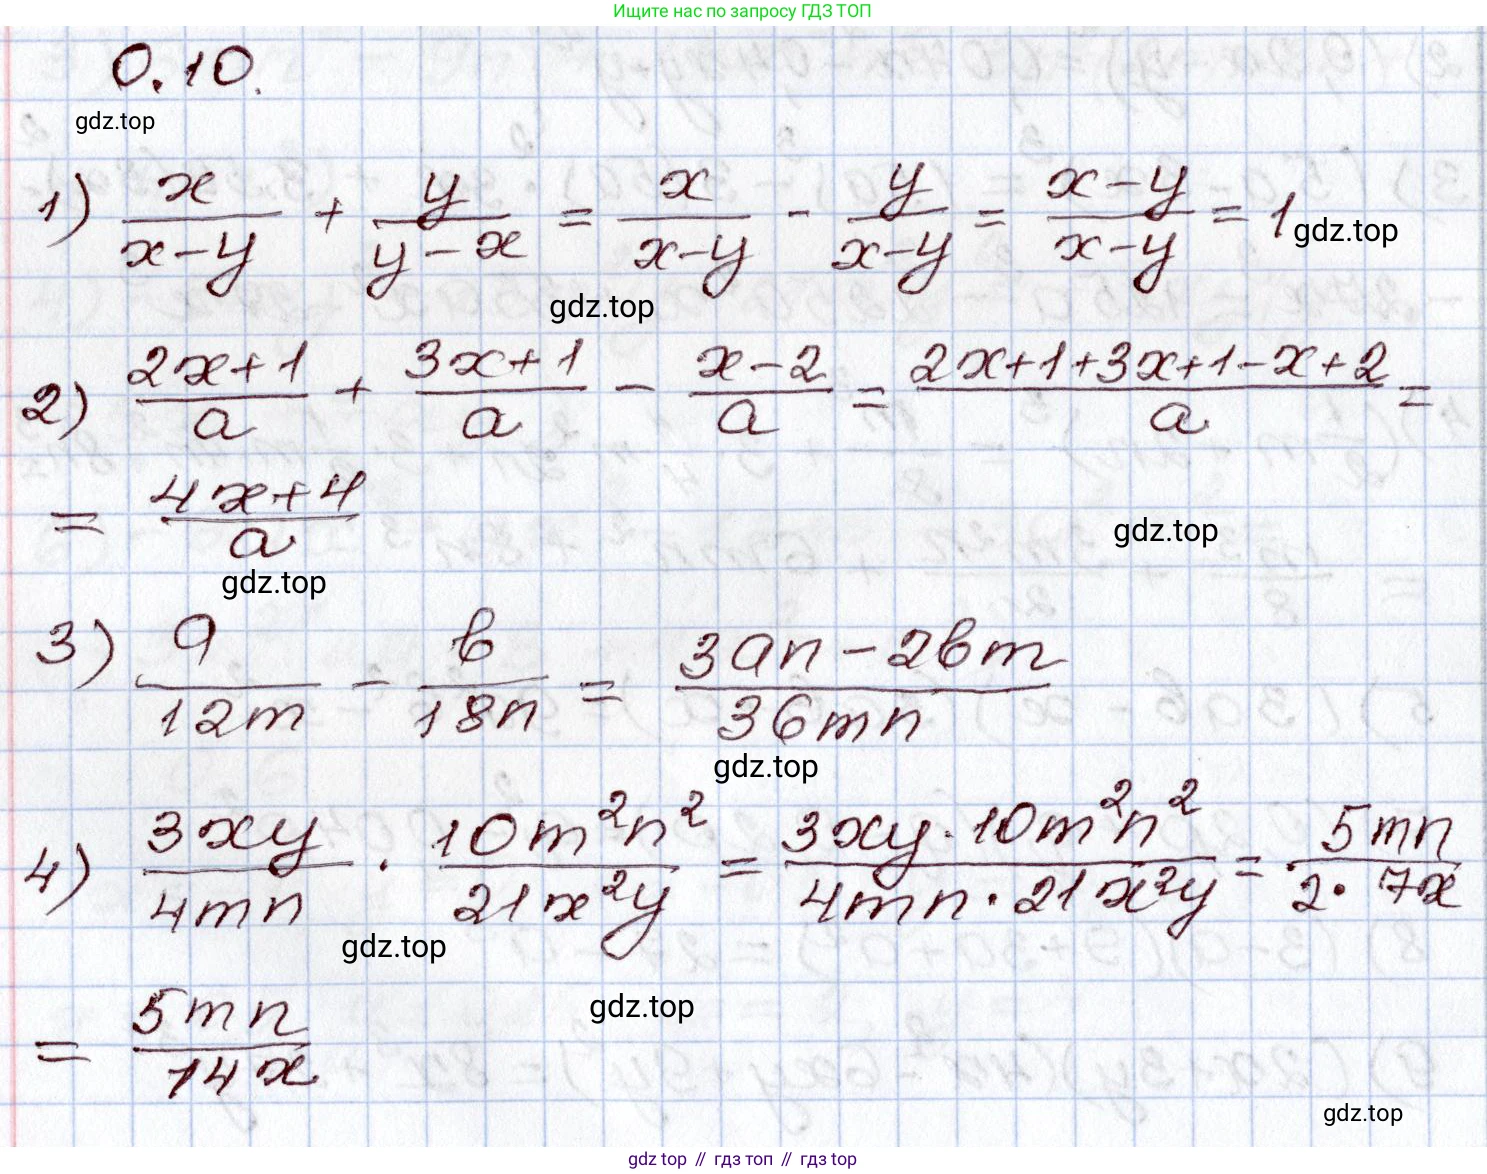 Ищите нас по запросу ГДЗ ТОП
0.10.
gdz.top
1) x/(x-y) + y/(y-x) = x/(x-y) - y/(x-y) = (x-y)/(x-y) = 1
gdz.top
gdz.top
2) (2x+1)/a + (3x+1)/a - (x-2)/a = (2x+1+3x+1-x+2)/a =
= (4x+4)/a
gdz.top
gdz.top
3) a/12m - b/18n = (3an-2bm)/36mn
gdz.top
4) 3xy/4mn · 10m²n²/21x²y = 3xy·10m²n²/4mn·21x²y = 5mn/2·7x
gdz.top
= 5mn/14x
gdz.top
gdz.top
gdz top // гдз топ // гдз top